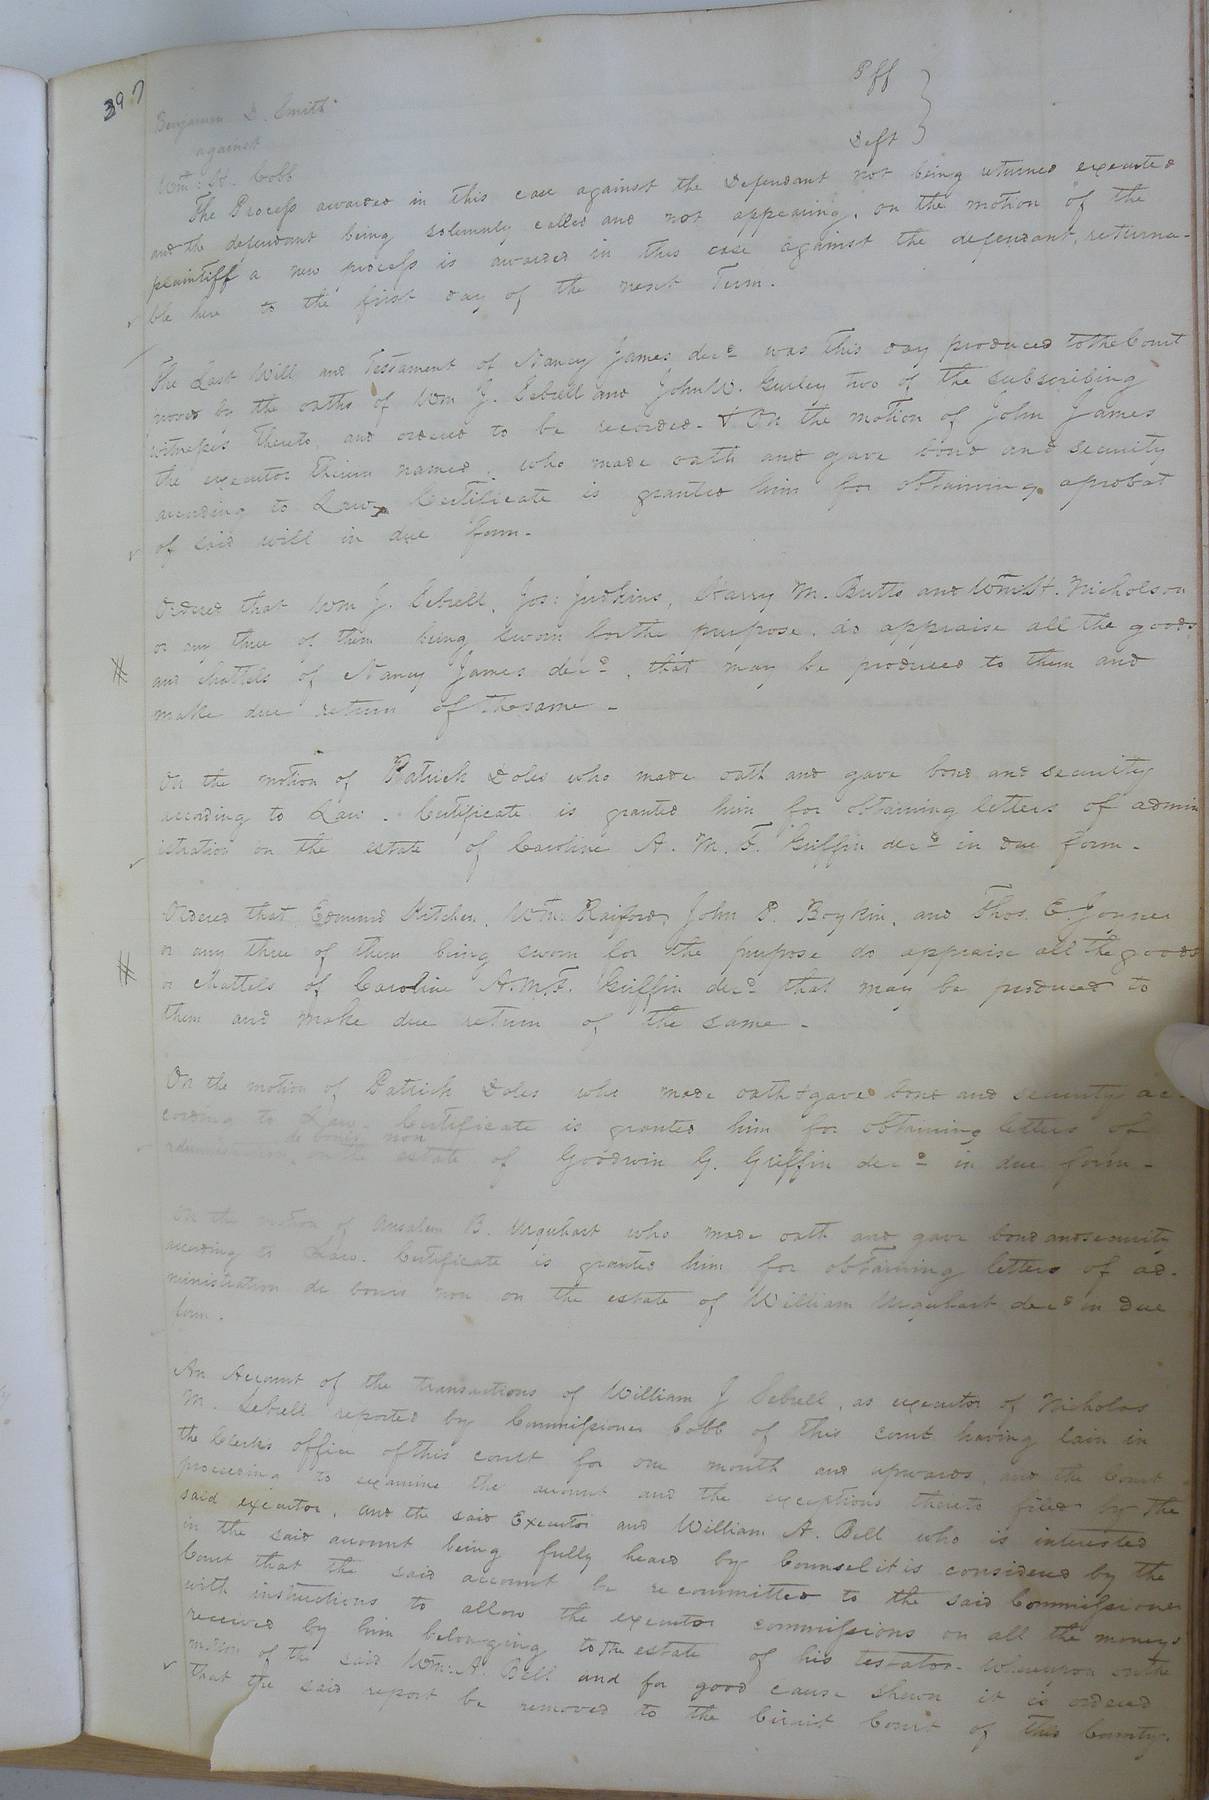 397
Benjamin D. Smith Pff
against
Wm: H. Cobb Deft
The Process awarded in this case against the Defendant not being returned executed
and the defendant being solemnly called and not appearing, on the motion of the
plaintiff a new process is awarded in this case against the defendant, returna-
ble here to the first day of the next Term.
The Last Will and Testament of Nancy James decd was this day produced to the Court
proved by the oaths of Wm J. Sebrell and John W. Gurley two of the subscribing
witnesses thereto, and ordered to be recorded. & On the motion of John James
the executor therein named, who made oath and gave bond and security
according to Law, Certificate is granted him for obtaining a probat
of said will in due form.
Ordered that Wm J. Sebrell, Jos: Judkins, Harry M. Butts and Wm H. Nicholson
or any three of them being sworn for the purpose, do appraise all the goods
and chattels of Nancy James decd, that may be produced to them and
make due return of the same.
On the motion of Patrick Doles who made oath and gave bond and security
according to Law. Certificate is granted him for obtaining letters of admin
istration on the estate of Caroline A. M. F. Griffin decd in due form.
Ordered that Edmund Kitchen, Wm: Raiford, John P. Boykin, and Thos. E. Joyner
or any three of them being sworn for the purpose do appraise all the goods
or chattels of Caroline A. M. F. Griffin decd that may be produced to
them and make due return of the same.
On the motion of Patrick Doles who made oath & gave bond and security ac-
cording to Law. Certificate is granted him for obtaining letters of
administration de bonis non on the estate of Goodwin G. Griffin decd in due form.
On the motion of Anselem B. Urquhart who made oath and gave bond and security
according to Law. Certificate is granted him for obtaining letters of ad-
ministration de bonis non on the estate of William Urquhart decd in due
form.
An Account of the transactions of William J Sebrell, as executor of Nicholas
M. Sebrell reported by Commissioner Cobb of this court having lain in
the Clerks office of this court for one month and upwards, and the Court
proceeding to examine the account and the exceptions thereto filed by the
said executor, and the said Executor and William A. Bell who is interested
in the said account being fully heard by Counsel it is considered by the
Court that the said account be recommitted to the said Commissioner
with instructions to allow the executor commissions on all the moneys
received by him belonging to the estate of his testator. Whereupon on the
motion of the said Wm: A. Bell and for good cause shewn it is ordered
that the said report be removed to the Circuit Court of this County.